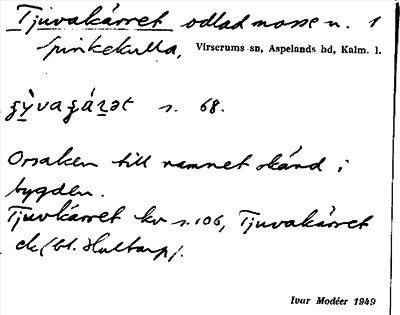 Tjuvakärret odlad mosse n. 1
Spinkekulla, Virserums sn, Aspelands hd, Kalm. l.
s. 68.
Orsaken till namnet okänd i
bygden.
Tjuvkärret kv s. 106, Tjuvakärret
Ivar Modéer 1949